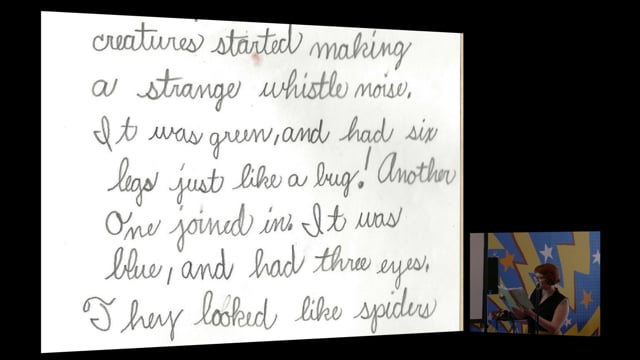 creatures started making
a strange whistle noise.
It was green, and had six
legs just like a bug! Another
One joined in. It was
blue, and had three eyes.
They looked like spiders